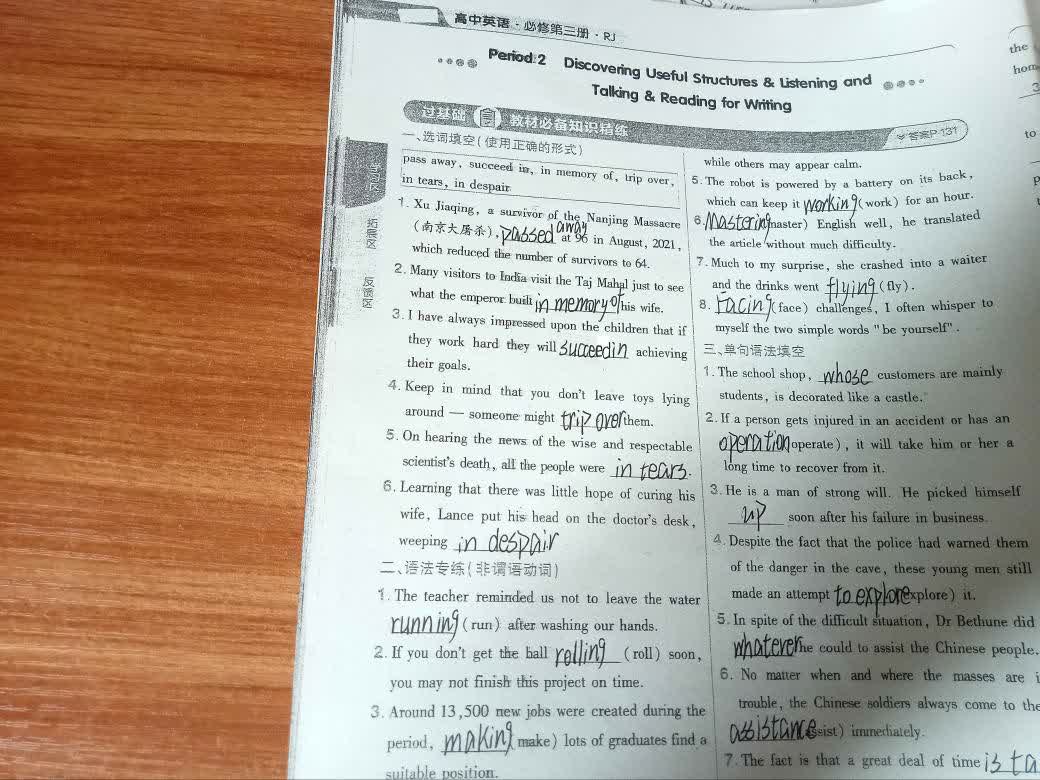 高中英语·必修第三册·RJ
Period 2 Discovering Useful Structures & Listening and
Talking & Reading for Writing
过基础 教材必备知识精练
答案P-131
一、选词填空(使用正确的形式)
pass away, succeed in, in memory of, trip over,
in tears, in despair
1. Xu Jiaqing, a survivor of the Nanjing Massacre
(南京大屠杀), passed away at 96 in August, 2021,
which reduced the number of survivors to 64.
2. Many visitors to India visit the Taj Mahal just to see
what the emperor built in memory of his wife.
3. I have always impressed upon the children that if
they work hard they will succeed in achieving
their goals.
4. Keep in mind that you don't leave toys lying
around — someone might trip over them.
5. On hearing the news of the wise and respectable
scientist's death, all the people were in tears.
6. Learning that there was little hope of curing his
wife, Lance put his head on the doctor's desk,
weeping in despair
二、语法专练(非谓语动词)
1. The teacher reminded us not to leave the water
running (run) after washing our hands.
2. If you don't get the ball rolling (roll) soon,
you may not finish this project on time.
3. Around 13,500 new jobs were created during the
period, making make) lots of graduates find a
suitable position.
while others may appear calm.
5. The robot is powered by a battery on its back,
which can keep it working (work) for an hour.
6. Mastering master) English well, he translated
the article without much difficulty.
7. Much to my surprise, she crashed into a waiter
and the drinks went flying (fly).
8. Facing (face) challenges, I often whisper to
myself the two simple words "be yourself".
三、单句语法填空
1. The school shop, whose customers are mainly
students, is decorated like a castle.
2. If a person gets injured in an accident or has an
operation operate), it will take him or her a
long time to recover from it.
3. He is a man of strong will. He picked himself
up soon after his failure in business.
4. Despite the fact that the police had warned them
of the danger in the cave, these young men still
made an attempt to explore explore) it.
5. In spite of the difficult situation, Dr Bethune did
whatever he could to assist the Chinese people.
6. No matter when and where the masses are i
trouble, the Chinese soldiers always come to the
assistance ssist) immediately.
7. The fact is that a great deal of time is ta
拓展区
反馈区
the
hom
3
to